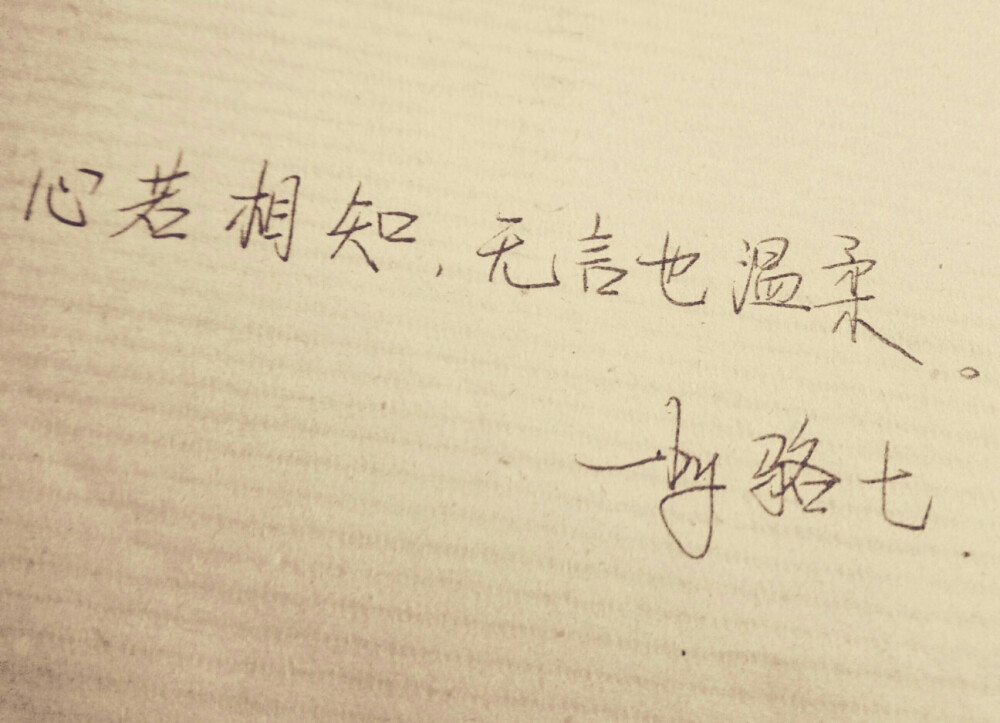 心若相知,无言也温柔。
骆七.